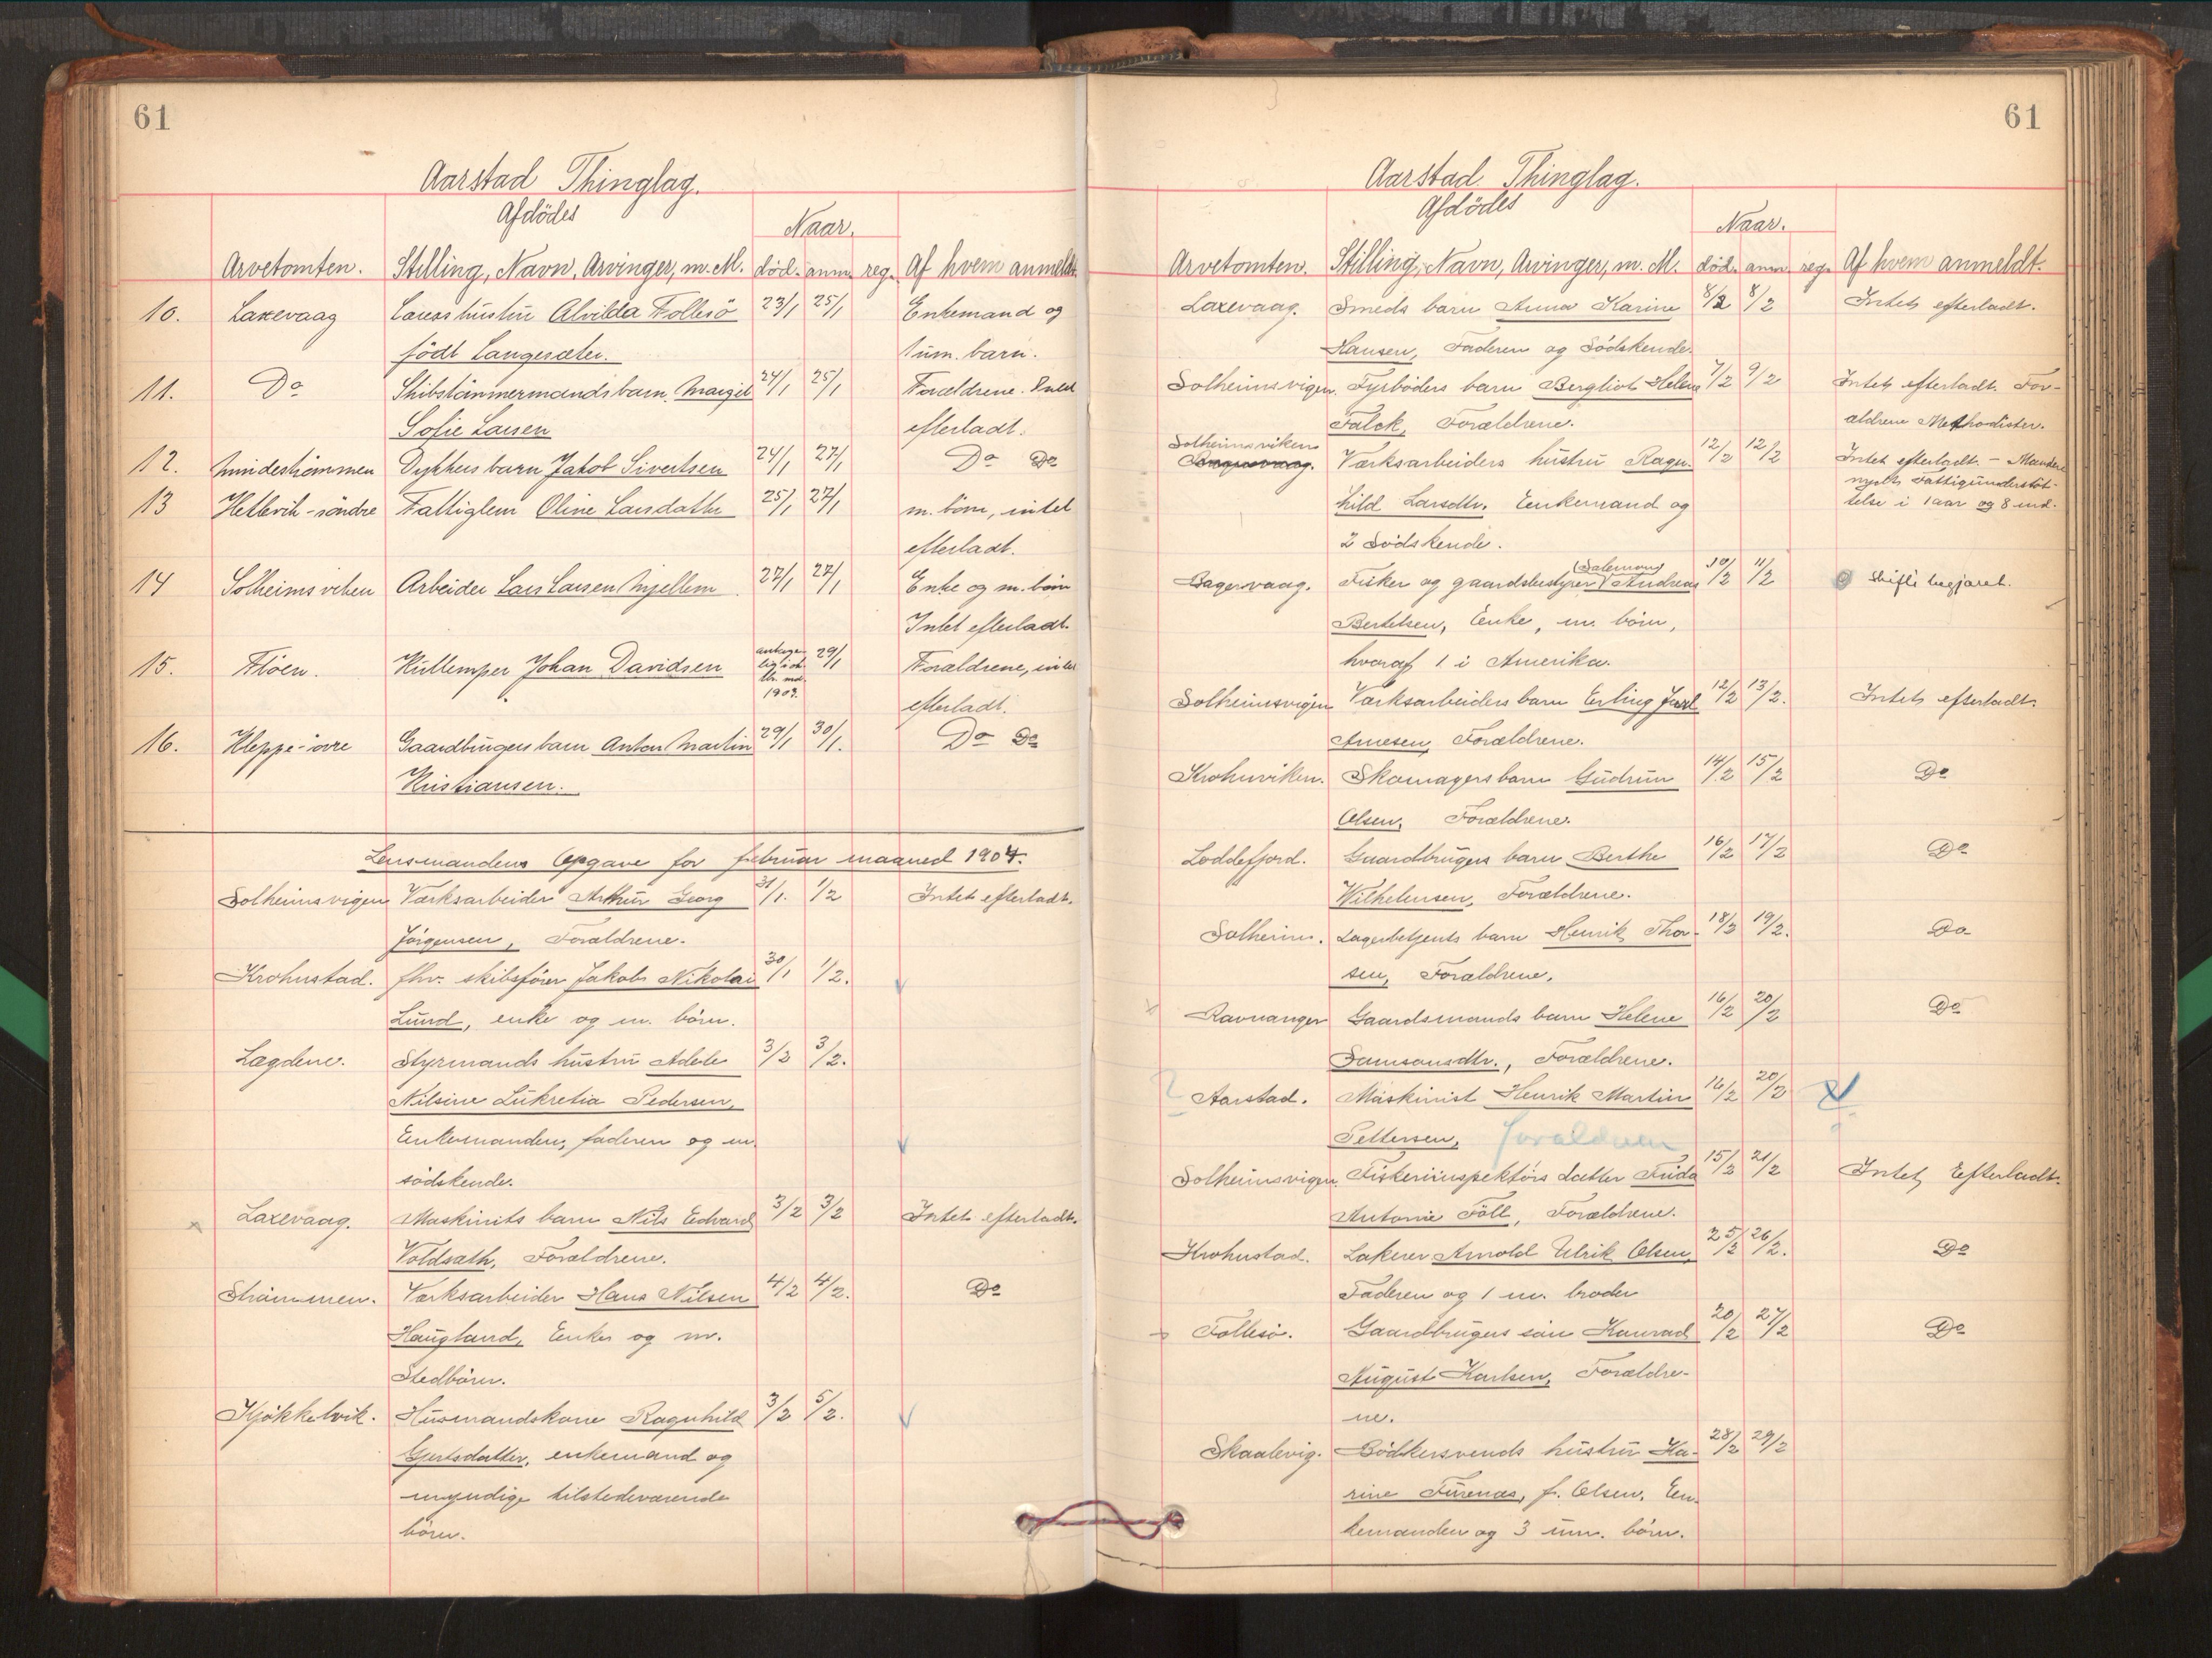 61
Aarstad Thinglag.
Afdödes
Naar.
Arvetomten. Stilling, Navn, Arvinger, m. M. död. anm. reg. Af hvem anmeldt.
10. Laxevaag Losshustru Alvilda Follesö 23/1 25/1 Enkemand og
födt Langesæter. 1 um. barn.
11. Do Skibstömmermandsbarn Margit 24/1 25/1 Forældrene. Intet
Sofie Larsen efterladt.
12. Mindeströmmen Dykkers barn Jakob Sivertsen 24/1 27/1 Do Do
13 Hetlevik-söndre Fattiglem Oline Larsdatter 25/1 27/1 m. börn, intet
efterladt.
14 Solheimsviken Arbeider Lars Larsen Mjellem 27/1 27/1 Enke og m. börn
Intet efterladt.
15. Flöen. Kullemper Johan Davidsen 29/1 Forældrene, intet
1903.
efterladt.
16. Kleppe-övre Gaardbrugers barn Anton Martin 29/1 30/1. Do Do
Kristiansen.
Lensmandens Opgave for februar maaned 1904.
Solheimsvigen Værksarbeider Arthur Georg 31/1. 1/2 Intet efterladt.
Jörgensen, Forældrene.
Krohnstad. fhv. skibsförer Jakob Nikolai 30/1 1/2.
Lund, enke og m. börn.
Lægdene. Styrmands hustru Adele 3/2 3/2.
Nilsine Lukretia Pedersen,
Enkemanden, faderen og m.
södskende.
Laxevaag. Maskinists barn Nils Edvard 3/2 3/2 Intet efterladt.
Voldsath, Forældrene.
Strömmen. Værksarbeider Hans Nilsen 4/2 4/2. Do
Haugland, Enke og m.
Stedbörn.
Kjökkelvik. Husmandskone Ragnhild 3/2 5/2.
Gjertsdatter, enkemand og
myndige tilstedeværende
börn.
61
Aarstad Thinglag.
Afdödes
Naar.
Arvetomten. Stilling, Navn, Arvinger, m. M. död. anm. reg. Af hvem anmeldt.
Laxevaag. Smeds barn Anna Karine 8/2 8/2 Intet efterladt.
Hansen, Faderen og Södskende.
Solheimsvigen. Fyrböders barn Bergliot Helene 7/2 9/2 Intet efterladt. For-
Falck, Forældrene. ældrene Methodister.
Solheimsviken
Værksarbeiders hustru Ragn- 12/2 12/2 Intet efterladt. - Manden
nydt fattigunderstöt-
hild Larsdtr. Enkemand og telse i 1 aar og 8 md.
2 Södskende.
(Salemon)
Bagervaag. Fisker og gaardsbestyrer Andreas 10/2 11/2 Skifte begjæret.
Bertelsen, Enke, m. börn,
hvoraf 1 i Amerika.
Solheimsvigen Værksarbeiders barn Erling Juul 12/2 13/2. Intet efterladt.
Arnesen, Forældrene.
Krohnviken. Skomagers barn Gudrun 14/2 15/2 Do
Olsen, Forældrene.
Loddefjord. Gaardbrugers barn Berthe 16/2 17/2 Do
Wilhelmsen, Forældrene.
Solheim. Lagerbetjents barn Henrik Thor- 18/2 19/2. Do
sen, Forældrene.
Ravnanger Gaardsmands barn Helene 16/2 20/2 Do
Samsonsdtr., Forældrene.
? Aarstad. Maskinist Henrik Martin 16/2 20/2
Pettersen, forældrene
Solheimsvigen. Fiskeriinspektörs datter Frida 15/2 21/2 Intet Efterladt.
Antonie Föll, Forældrene.
Krohnstad. Lakerer Arnold Ulrik Olsen, 25/2 26/2. Do
Faderen og 1 m. broder
Follesö. Gaardbrugers sön Konrad 20/2 27/2 Do
August Karlsen, Forældre-
ne.
Skaalevig. Bödkersvends hustru Ka- 28/2 29/2
rine Furenæs, f. Olsen. En-
kemanden og 3 um. börn.